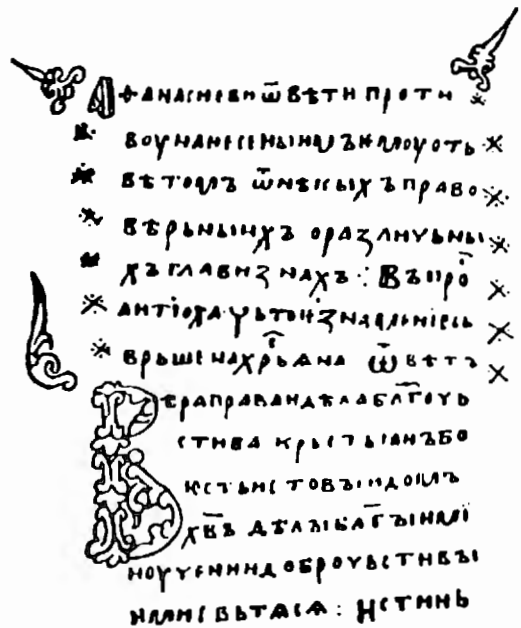 Афанасиеви ѿвѣти проти
воу нанесенъıимъ ѥмоу отъ
вѣтомъ ѿ нѣкыхъ право
вѣрьныихъ о различьны
хъ главизнахъ : Въпро
антіоха · чьто знамениѥ съ
врьшена хрьана ѿвѣтъ
Вѣра права и дѣла блгочь
стива крьстьıанъ бо
ѥсть истовъı домъ
хвъ дѣлъı багъıимі
ноучении доброчьстивъı
ими съвьтаѩсѧ : Истинь